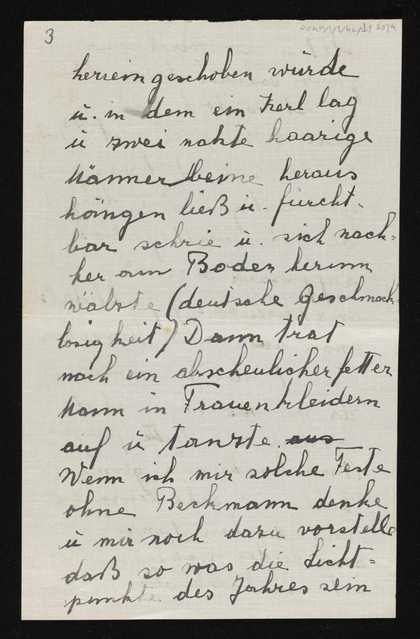 3
hereingeschoben würde
u. in dem ein Kerl lag
u zwei nakte haarige
Männer beine heraus
hängen ließ u. furcht-
bar schrie u. sich nach-
her am Boden herum
wälzte (deutsche Geschmack
losigkeit) Dann trat
noch ein abscheulicher fetter
Mann in Frauenkleidern
auf u tanzte aus
Wenn ich mir solche Feste
ohne Beckmann denke
u mir noch dazu vorstelle
daß so was die Licht-
punkte des Jahres sein